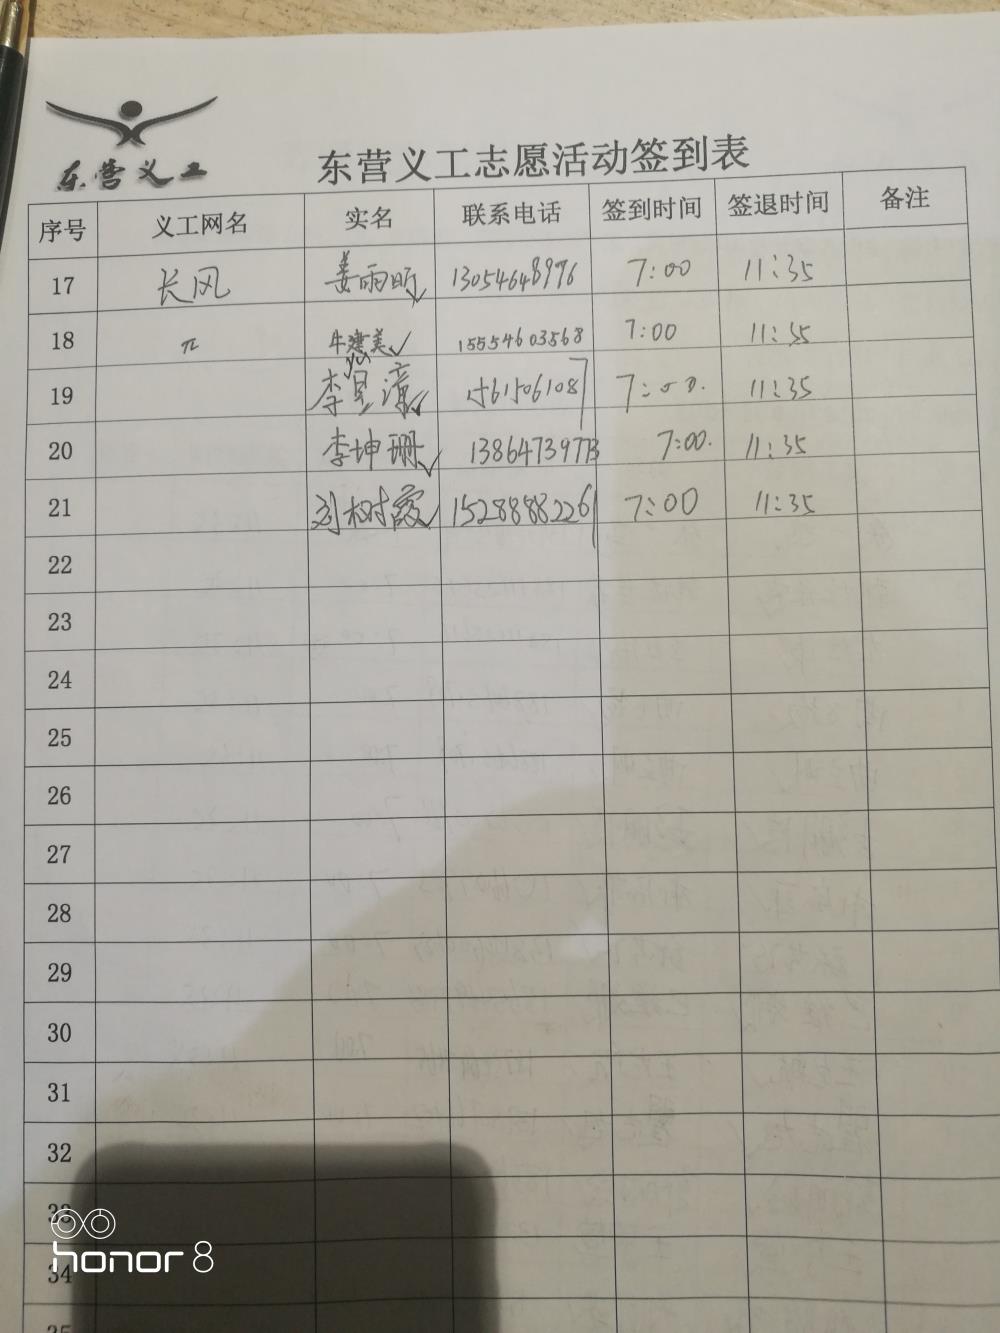 东营义工
东营义工志愿活动签到表
序号 义工网名 实名 联系电话 签到时间 签退时间 备注
17 长风 姜雨昕 13054648976 7:00 11:35
18 π 牛建美 15554603568 7:00 11:35
19 李昱漳 7:00. 11:35
20 李坤珊 13864739773 7:00. 11:35
21 刘树霞 15288882261 7:00 11:35
22
23
24
25
26
27
28
29
30
31
32
33
34
35
honor 8